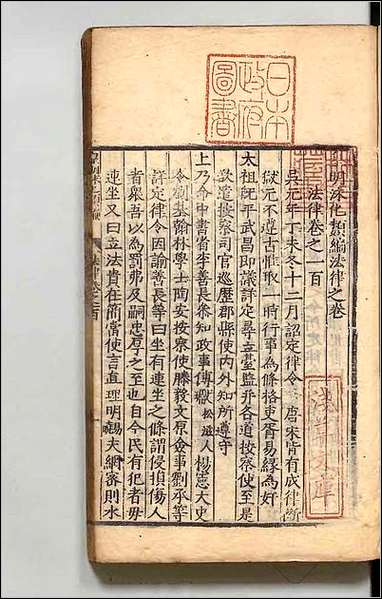 日本
政府
圖書
淺草文庫
皇明泳化類編法律之卷
法律卷之一百
吳元年丁未冬十二月詔定律令 唐宋皆有成律斷
獄元不遵古惟取一時行事為條格吏胥易緣為奸
太祖既平武昌即議評定尋立臺監并各道按察使至是
欲遣按察司官巡歷郡縣使內外知所遵守
上乃命中書省李善長參知政事傅瓛 松逘人 楊憲大史
令劉基翰林學士陶安按察使滕毅文原僉事劉承等
詳定律令因諭善長等曰坐有連坐之條謂侵損傷人
者衆吾以為罰弗及嗣忠厚之至也自今民有犯者毋
連坐又曰立法貴在簡當使言直理明 夫網密則水